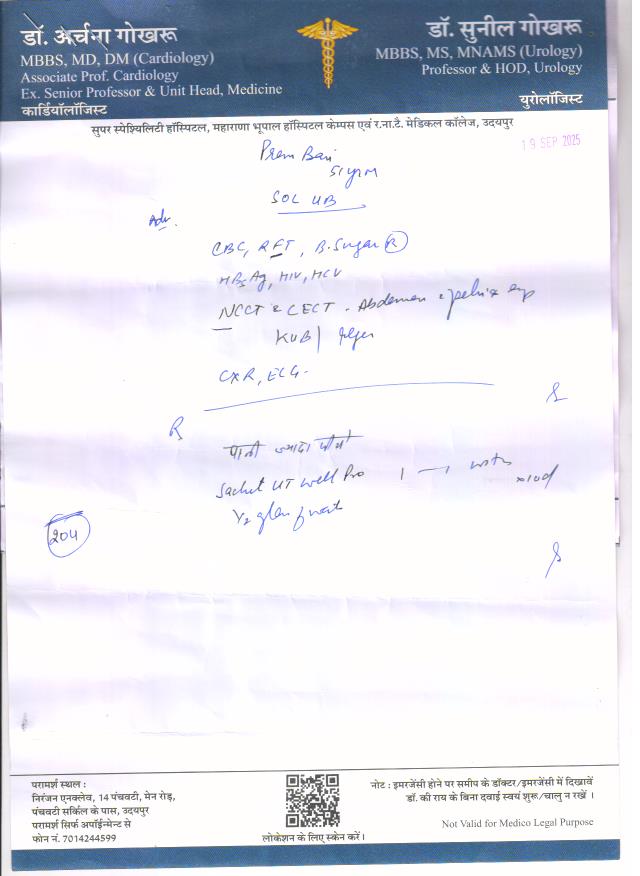 डॉ. अर्चना गोखरू
MBBS, MD, DM (Cardiology)
Associate Prof. Cardiology
Ex. Senior Professor & Unit Head, Medicine
कार्डियॉलॉजिस्ट
डॉ. सुनील गोखरू
MBBS, MS, MNAMS (Urology)
Professor & HOD, Urology
युरोलॉजिस्ट
सुपर स्पेशियलिटी हॉस्पिटल, महाराणा भूपाल हॉस्पिटल केम्पस एवं र.ना.टै. मेडिकल कॉलेज, उदयपुर
19 SEP 2025
Prem
51 yr M
SOL UB
Adv.
CBC, RFT, B. Sugar (R)
HBsAg, HIV, HCV
NCCT & CECT - Abdomen & pelvis
KUB/
CXR, ECG
R
पानी ज्यादा पीयें
Sachet UT well Pro 1 — 1 with x10d
1/2 glass of water
204
परामर्श स्थल :
निरंजन एनक्लेव, 14 पंचवटी, मेन रोड़,
पंचवटी सर्किल के पास, उदयपुर
परामर्श सिर्फ अपॉईन्मेन्ट से
फोन नं. 7014244599
लोकेशन के लिए स्केन करें।
नोट : इमरजेंसी होने पर समीप के डॉक्टर/इमरजेंसी में दिखावें
डॉ. की राय के बिना दवाई स्वयं शुरू/चालु न रखें ।
Not Valid for Medico Legal Purpose